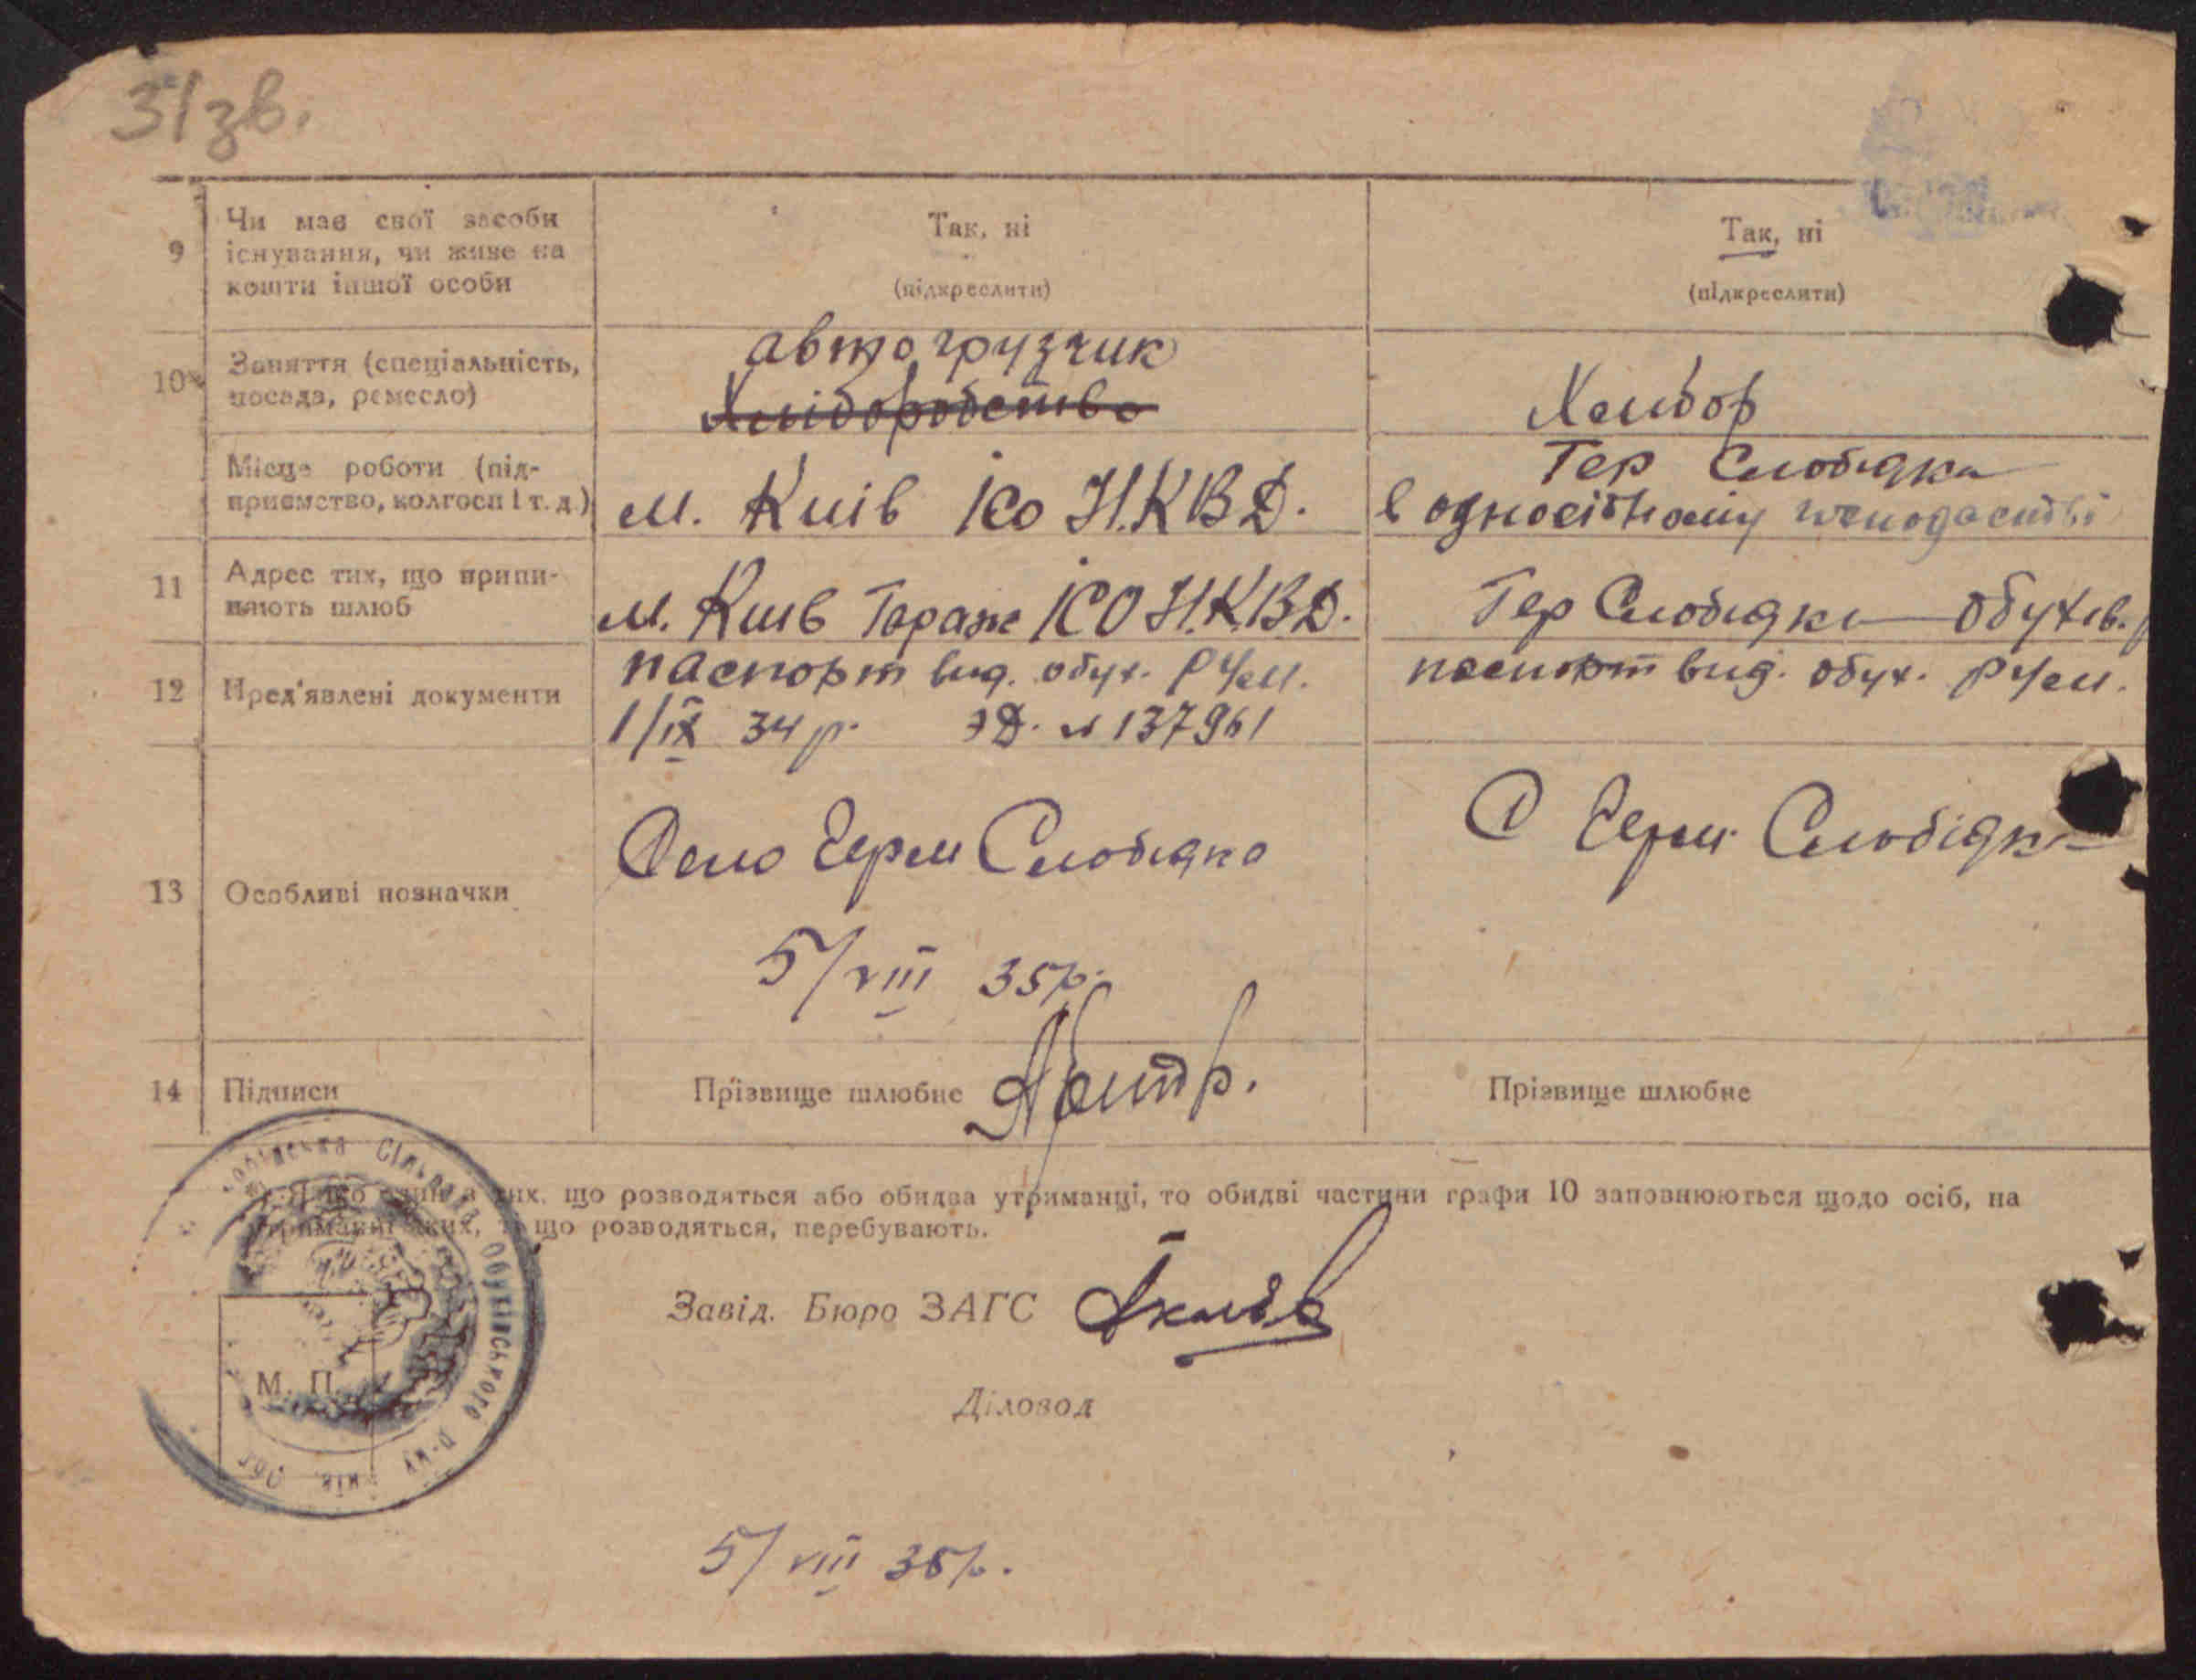 31зв.
9
Чи має свої засоби
існування, чи живе на
кошти іншої особи
Так, ні
(підкреслити)
Так, ні
(підкреслити)
10*
Заняття (спеціальність,
посада, ремесло)
автогрузчик
Хлібор
Місце роботи (під-
приємство, колгосп і т. д.)
м. Київ КО Н.К.В.Д.
Гер Слобідка
в односібному
11
Адрес тих, що припи-
няють шлюб
м. Київ Гараж КО Н.К.В.Д.
Гер Слобідка Обухів. р
12
Пред'явлені документи
паспорт вид. обух. РЧМ.
1/ІХ 34 р. № 137961
паспорт вид. обух. РЧМ.
13
Особливі позначки
Село Герм Слобідка
5/VIII 35р.
С Герм Слобідка
14
Підписи
Прізвище шлюбне
Прізвище шлюбне
що розводяться або обидва утриманці, то обидві частини графи 10 заповнюються щодо осіб, на
утриманні яких, що розводяться, перебувають.
Завід. Бюро ЗАГС
Діловод
М. П.
Сільрада Обухівського Р-ну Київ. Обл
5/VIII 35р.